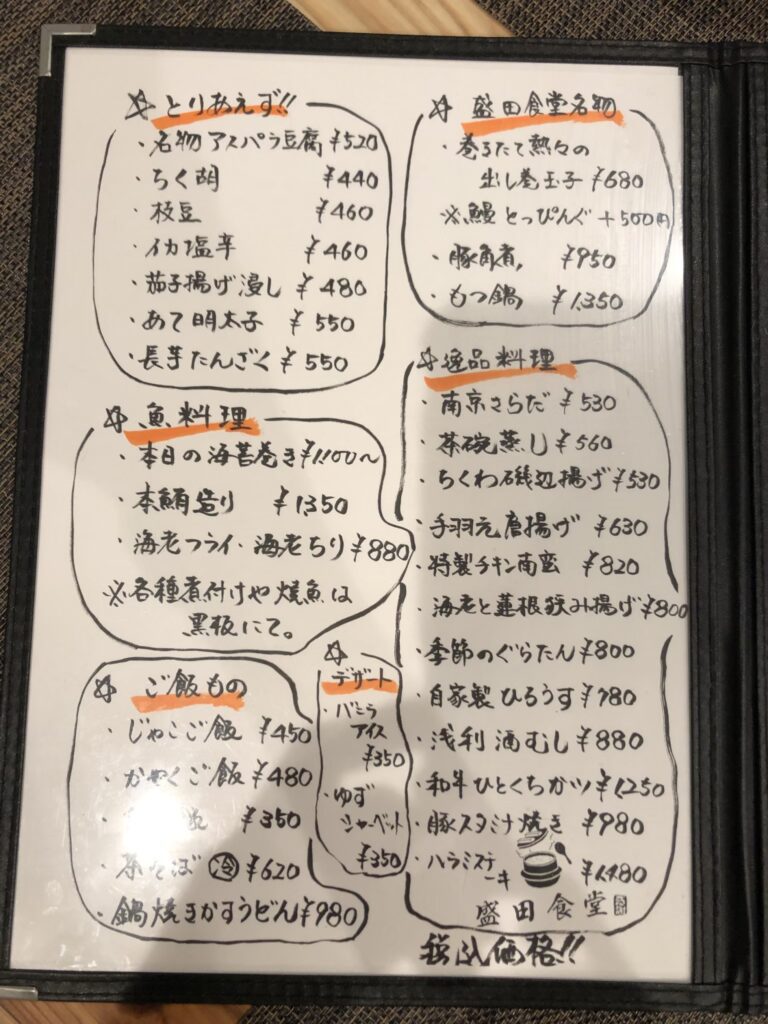 ☆とりあえず!!
・名物アスパラ豆腐 ¥520
・ちく胡 ¥440
・枝豆 ¥460
・イカ塩辛 ¥460
・茄子揚げ浸し ¥480
・あて明太子 ¥550
・長芋たんざく ¥550
☆魚料理
・本日の海苔巻き ¥1100〜
・本鮪造り ¥1350
・海老フライ・海老ちり ¥880
※各種煮付けや焼魚は
黒板にて。
☆ご飯もの
・じゃこご飯 ¥450
・かやくご飯 ¥480
¥350
・茶そば 冷 ¥620
・鍋焼きかすうどん ¥980
☆
デザート
・バニラ
アイス
¥350
・ゆず
シャーベット
¥350
☆盛田食堂名物
・巻きたて熱々の
出し巻玉子 ¥680
※鰻とっぴんぐ +500円
・豚角煮 ¥950
・もつ鍋 ¥1,350
☆逸品料理
・南京さらだ ¥530
・茶碗蒸し ¥560
・ちくわ磯辺揚げ ¥530
・手羽元唐揚げ ¥630
・特製チキン南蛮 ¥820
・海老と蓮根挟み揚げ ¥800
・季節のぐらたん ¥800
・自家製ひろうす ¥780
・浅利酒むし ¥880
・和牛ひとくちかツ ¥1,250
・豚スタミナ焼き ¥980
・ハラミステーキ ¥1,480
盛田食堂
税込価格!!